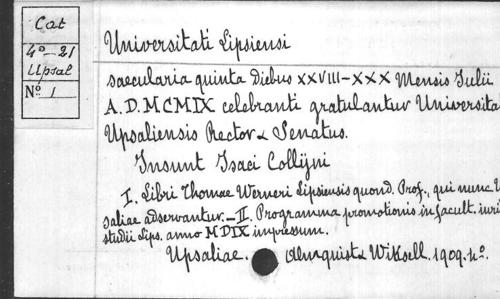 Cat
4º-21
Upsal
Nº 1
Universitati Lipsiensi
saecularia quinta diebus XXVIII-XXX Mensis Iulii
A. D. MCMIX celebranti gratulantur Universita
Upsaliensis Rector & Senatus.
Insunt Isaci Collijni
I. Libri Thomae Werneri Lipsiensis quond. Prof., qui nunc U
saliae adservantur. - II. Programma promotionis in facult. iuri
studii Lips. anno MDIX impressum.
Upsaliae. Almquist & Wiksell. 1909. 4º.